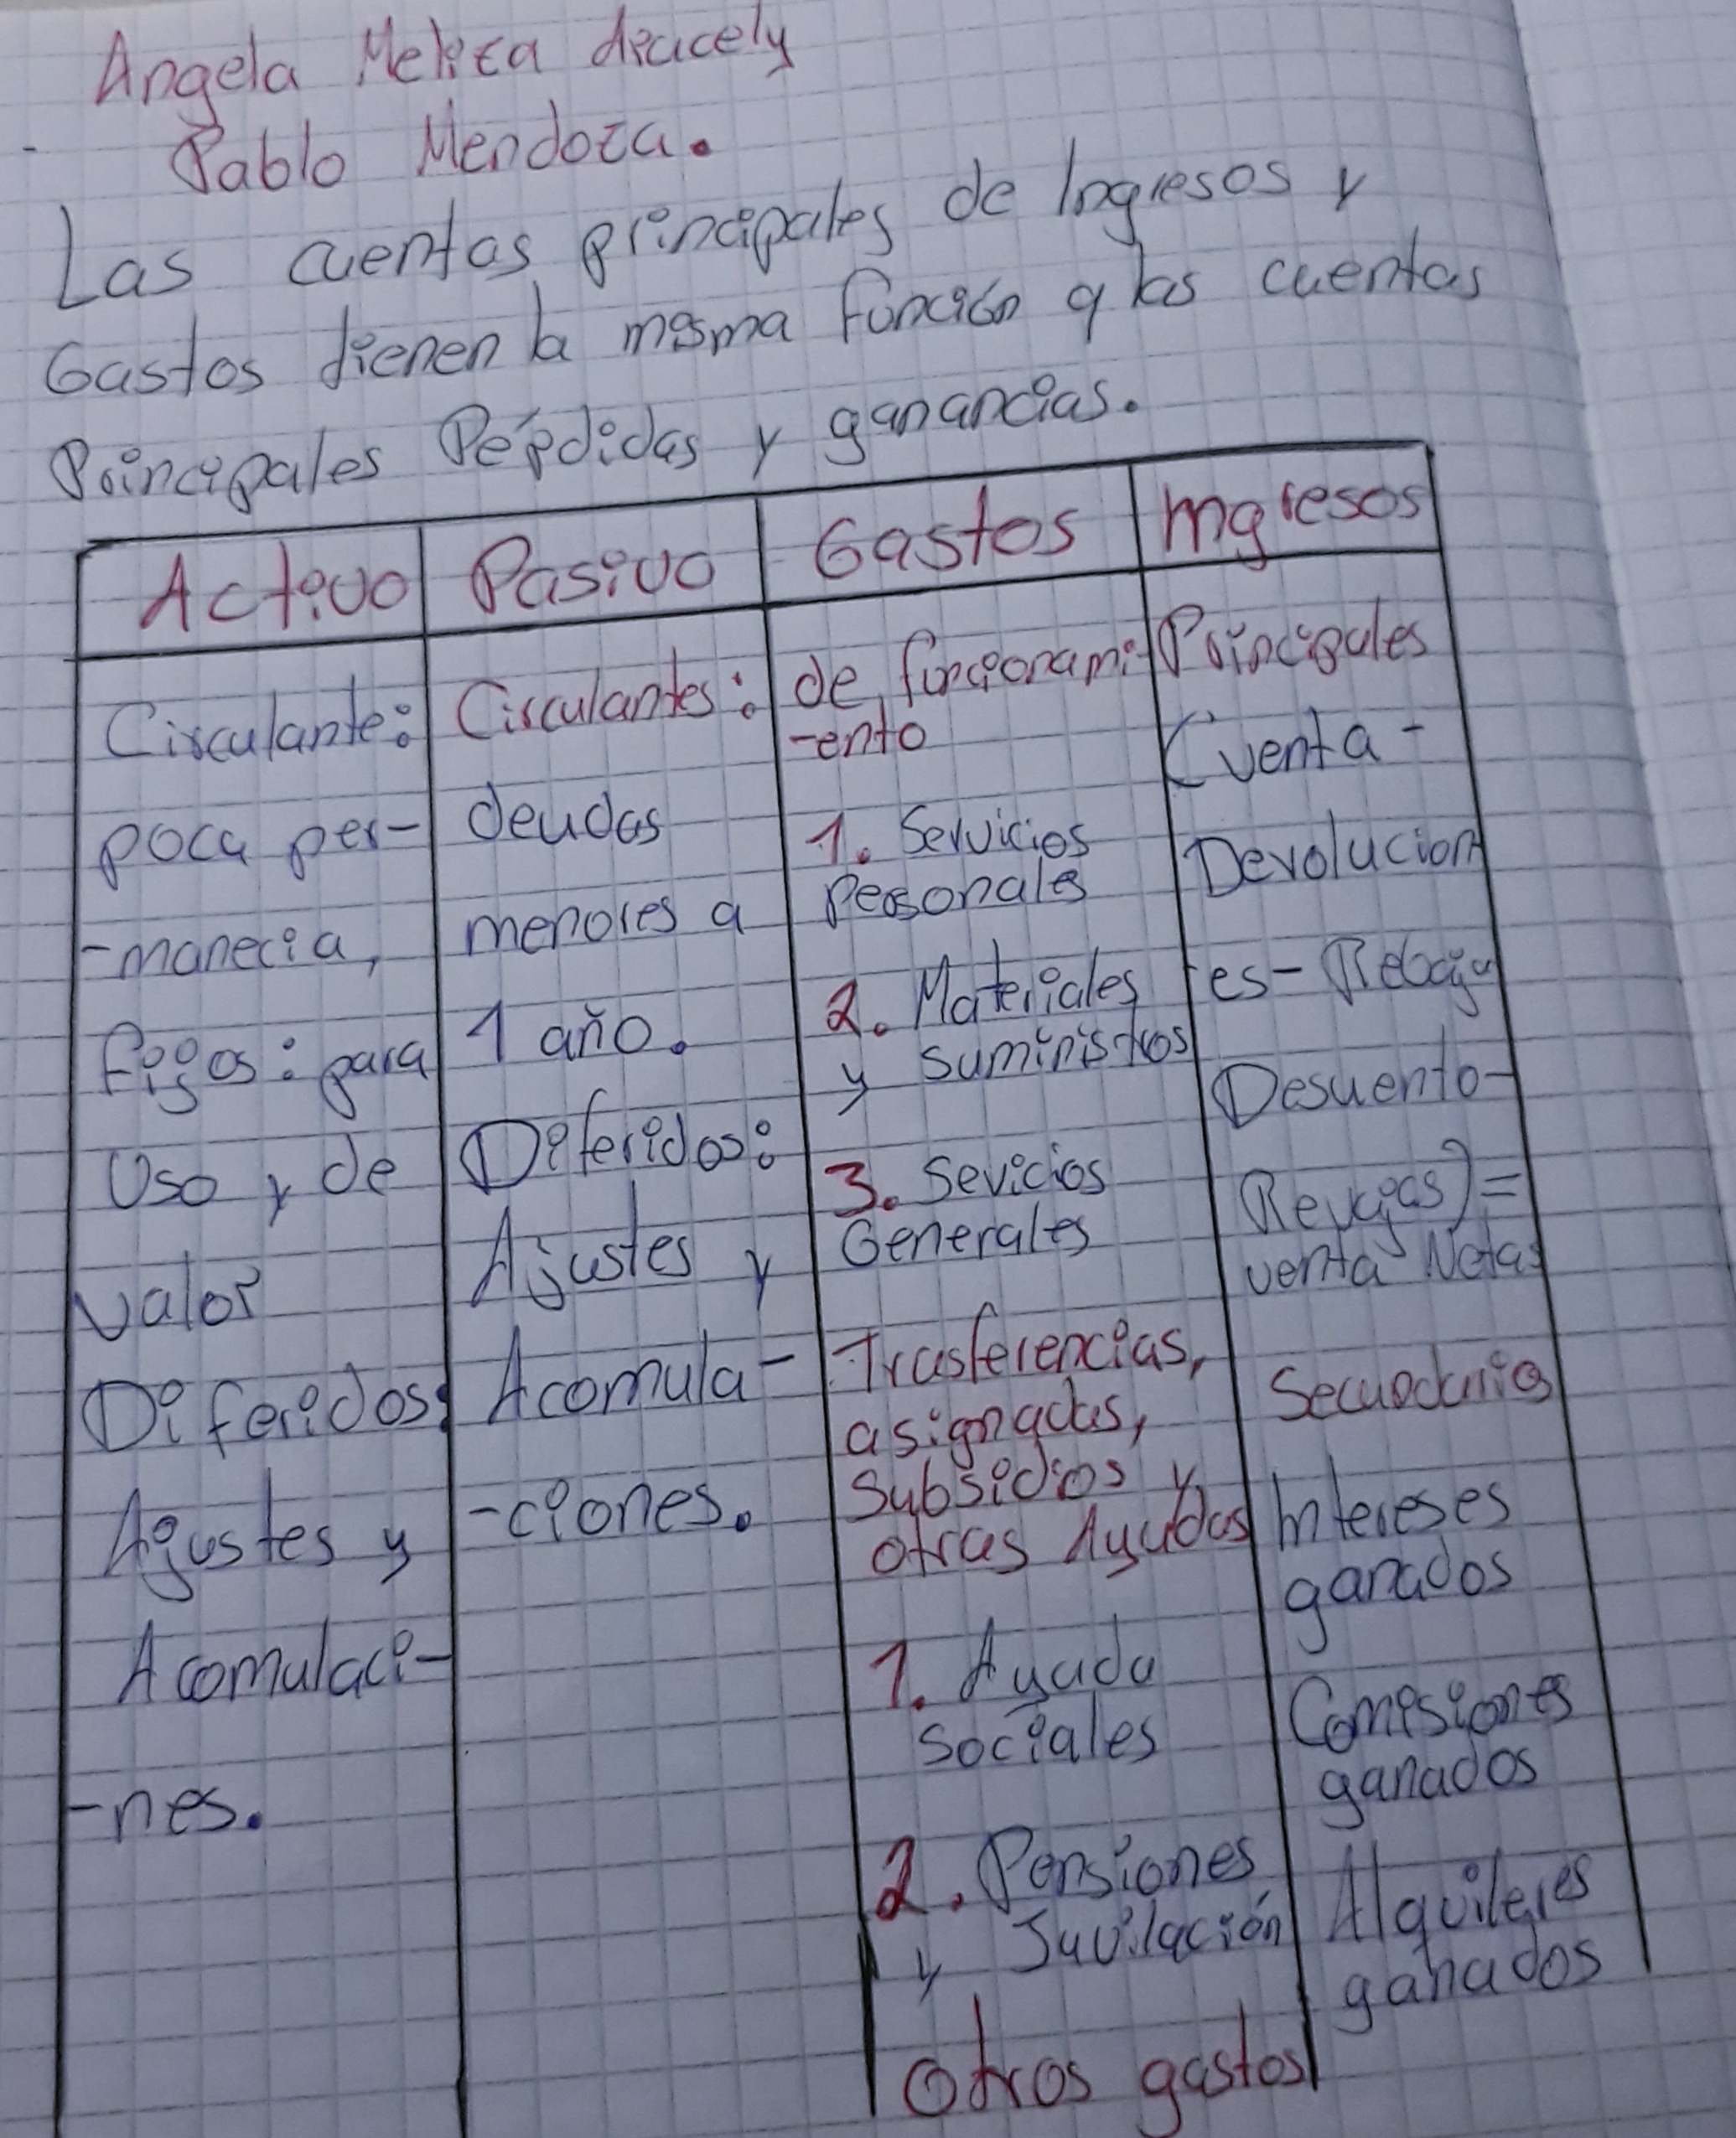 Angela Meliza Aracely
Pablo Mendoza.
Las cuentas principales de Ingresos y
Gastos tienen la misma función q las cuentas
Principales Pérdidas y ganancias.
Activo
Circulante:
poca per-
-manecia,
fijos: para
Uso y de
valor
Diferidos:
Ajustes y
Acomulaci-
-nes.
Pasivo
Circulantes:
deudas
menores a
1 año.
Diferidos:
Ajustes y
Acomula-
-ciones.
Gastos
de funcionami-
-ento
1. Servicios
Personales
2. Materiales
y suministros
3. Sevicios
Generales
Trasferencias,
asignadas,
Subsidios y
otras Ayudas
1. Ayuda
sociales
2. Pensiones
y Juvilación
Otros gastos
Ingresos
Principales
(venta -
Devolucion
es - Rebaja
Desuento -
venta Netas
Intereses
ganados
Comisiones
ganados
Alquileres
ganados